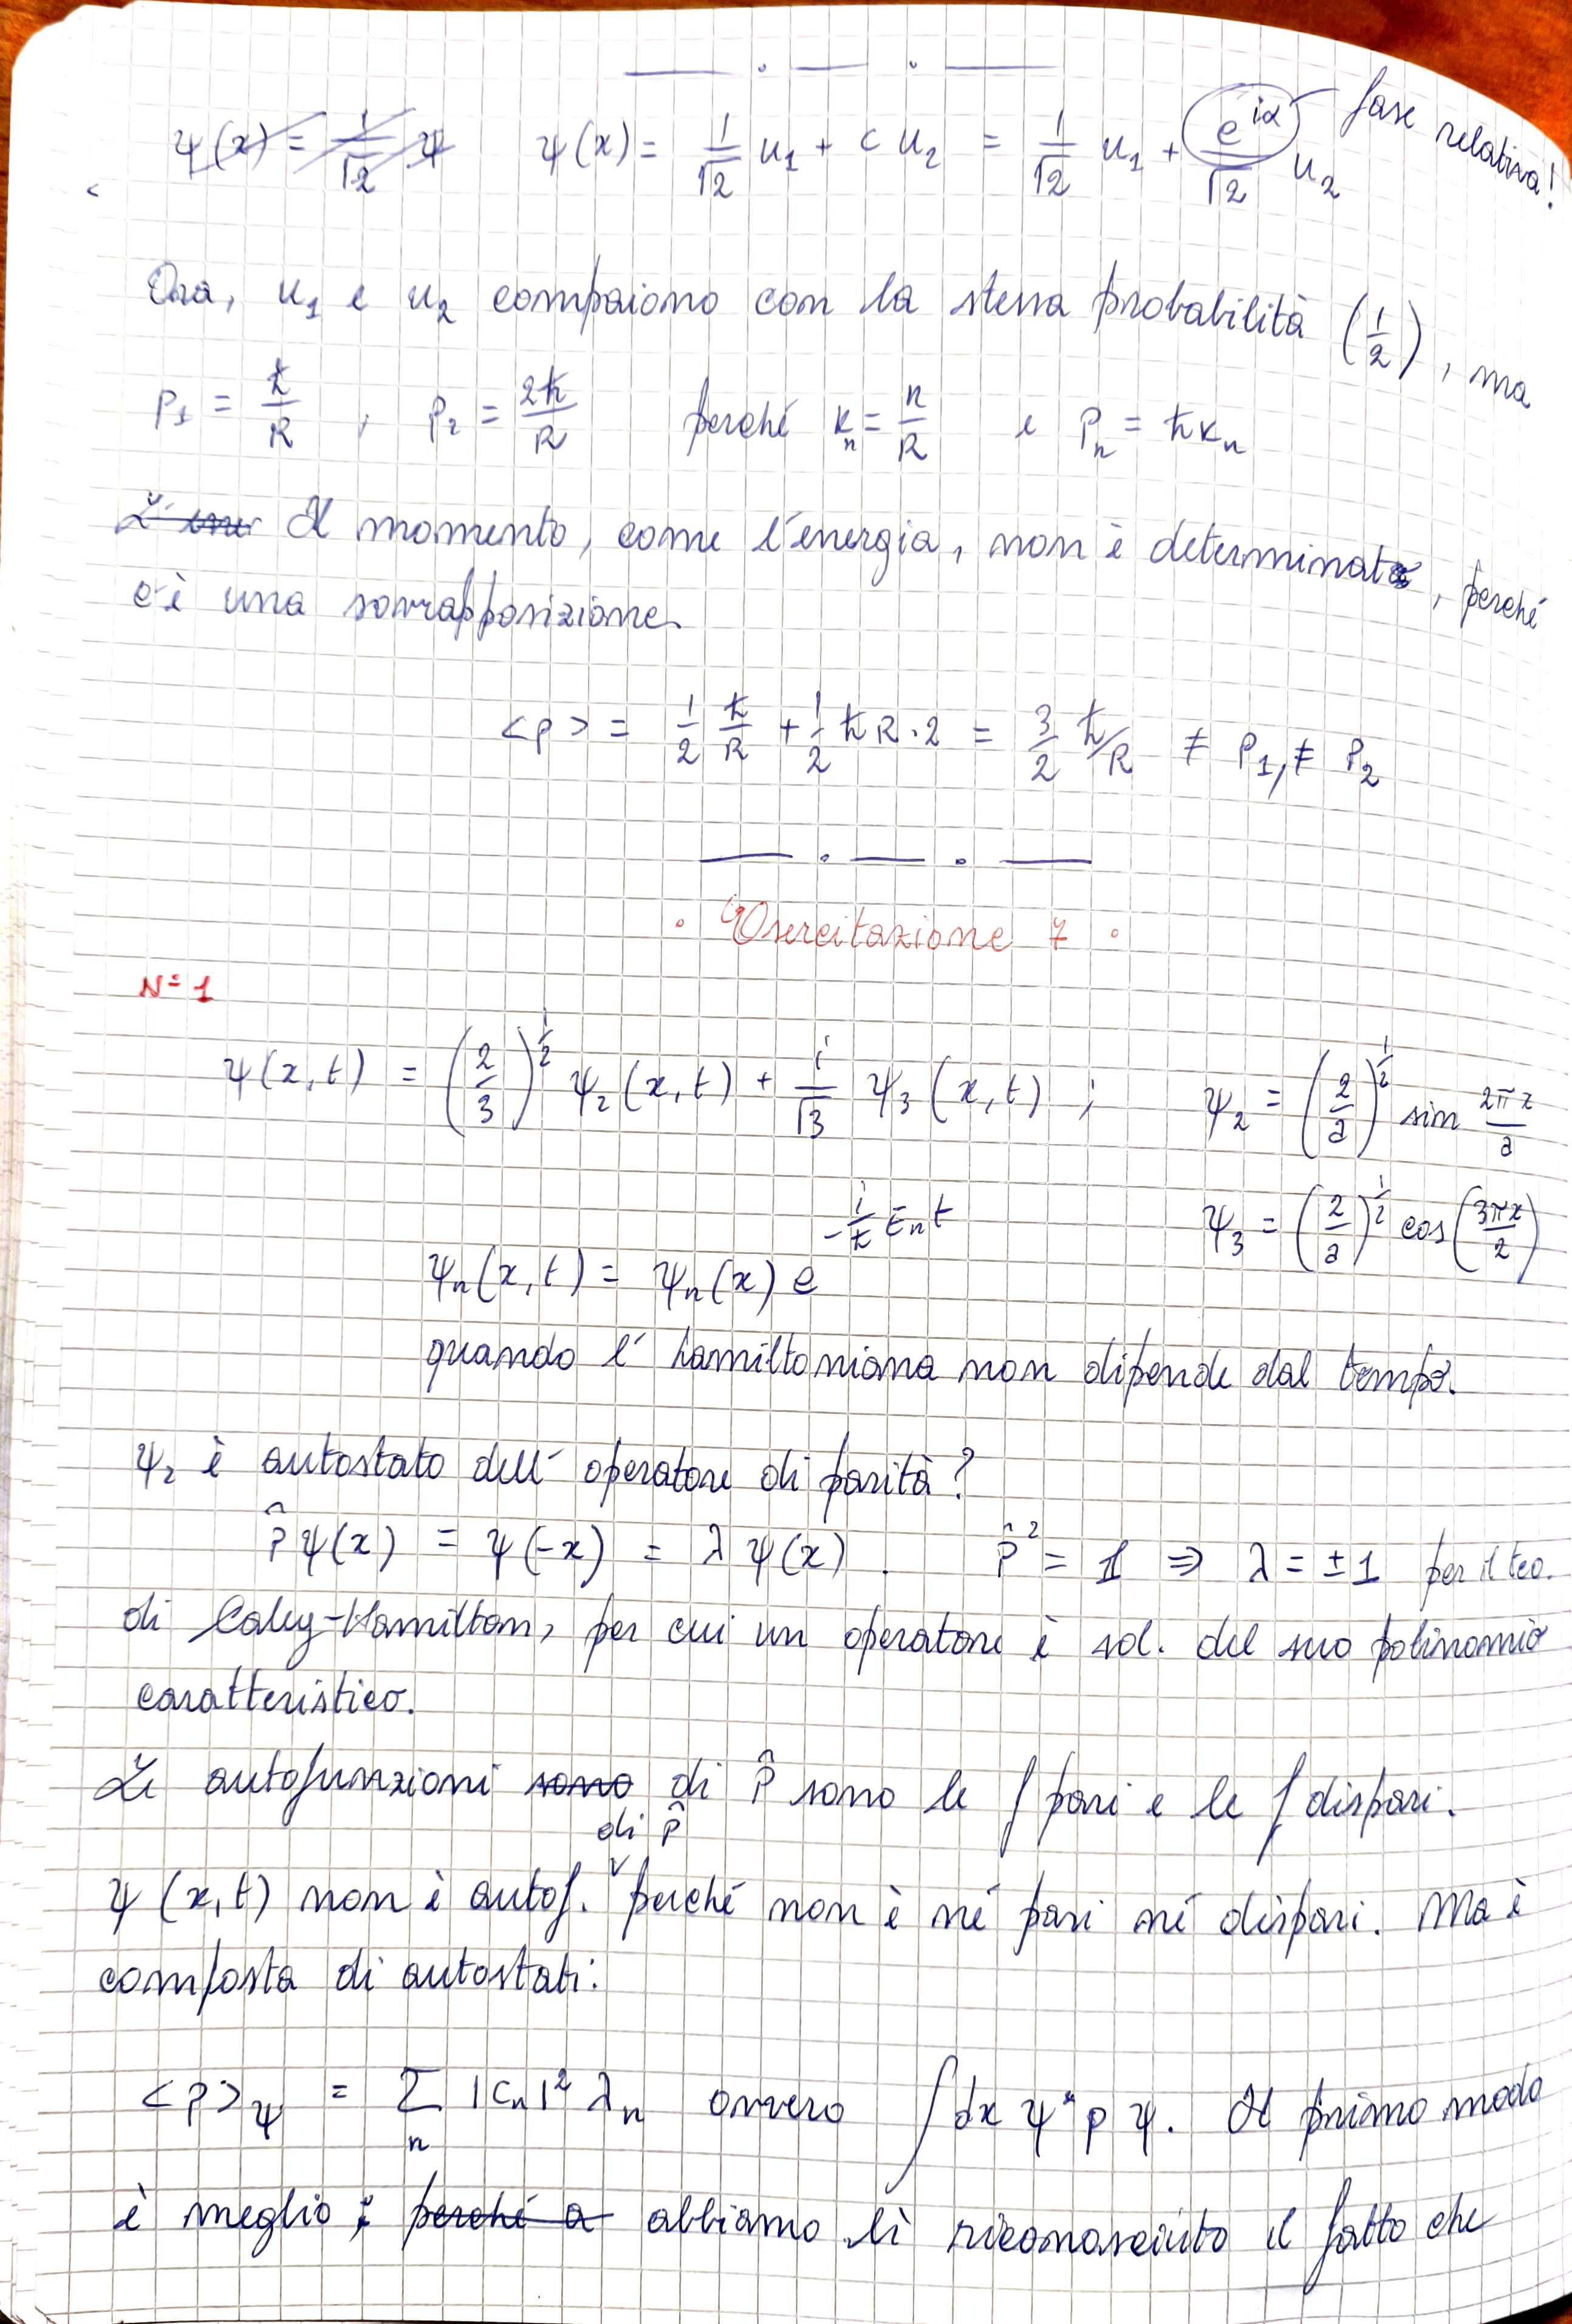 ψ(x) = 1/√2 ψ ψ(x) = 1/√2 u₁ + c u₂ = 1/√2 u₁ + e^{iα}/√2 u₂ fase relativa!
Ora, u₁ e u₂ compaiono con la stessa probabilità (1/2), ma
p₁ = ℏ/R , p₂ = 2ℏ/R perché k_n = n/R e p_n = ℏk_n
Il momento, come l'energia, non è determinato, perché
c'è una sovrapposizione.
<p> = 1/2 ℏ/R + 1/2 ℏR·2 = 3/2 ℏ/R ≠ p₁, ≠ p₂
· Esercitazione 7 ·
N° 1
ψ(x,t) = (2/3)^{1/2} ψ₂(x,t) + i/√3 ψ₃(x,t) ; ψ₂ = (2/a)^{1/2} sin 2πx/a
ψ₃ = (2/a)^{1/2} cos(3πx/a)
ψ_n(x,t) = ψ_n(x) e^{-i/ℏ E_n t}
quando l'hamiltoniana non dipende dal tempo.
ψ₂ è autostato dell'operatore di parità?
P̂ψ(x) = ψ(-x) = λψ(x). P̂² = 𝟙 ⇒ λ = ±1 per il teo.
di Caley-Hamilton, per cui un operatore è sol. del suo polinomio
caratteristico.
Le autofunzioni sono di P̂ sono le f pari e le f dispari.
di P̂
ψ(x,t) non è autof. perché non è né pari né dispari. Ma è
composta di autostati:
<P>_ψ = Σ_n |c_n|² λ_n ovvero ∫dx ψ* p ψ. Il primo modo
è meglio; perché a abbiamo lì riconosciuto il fatto che